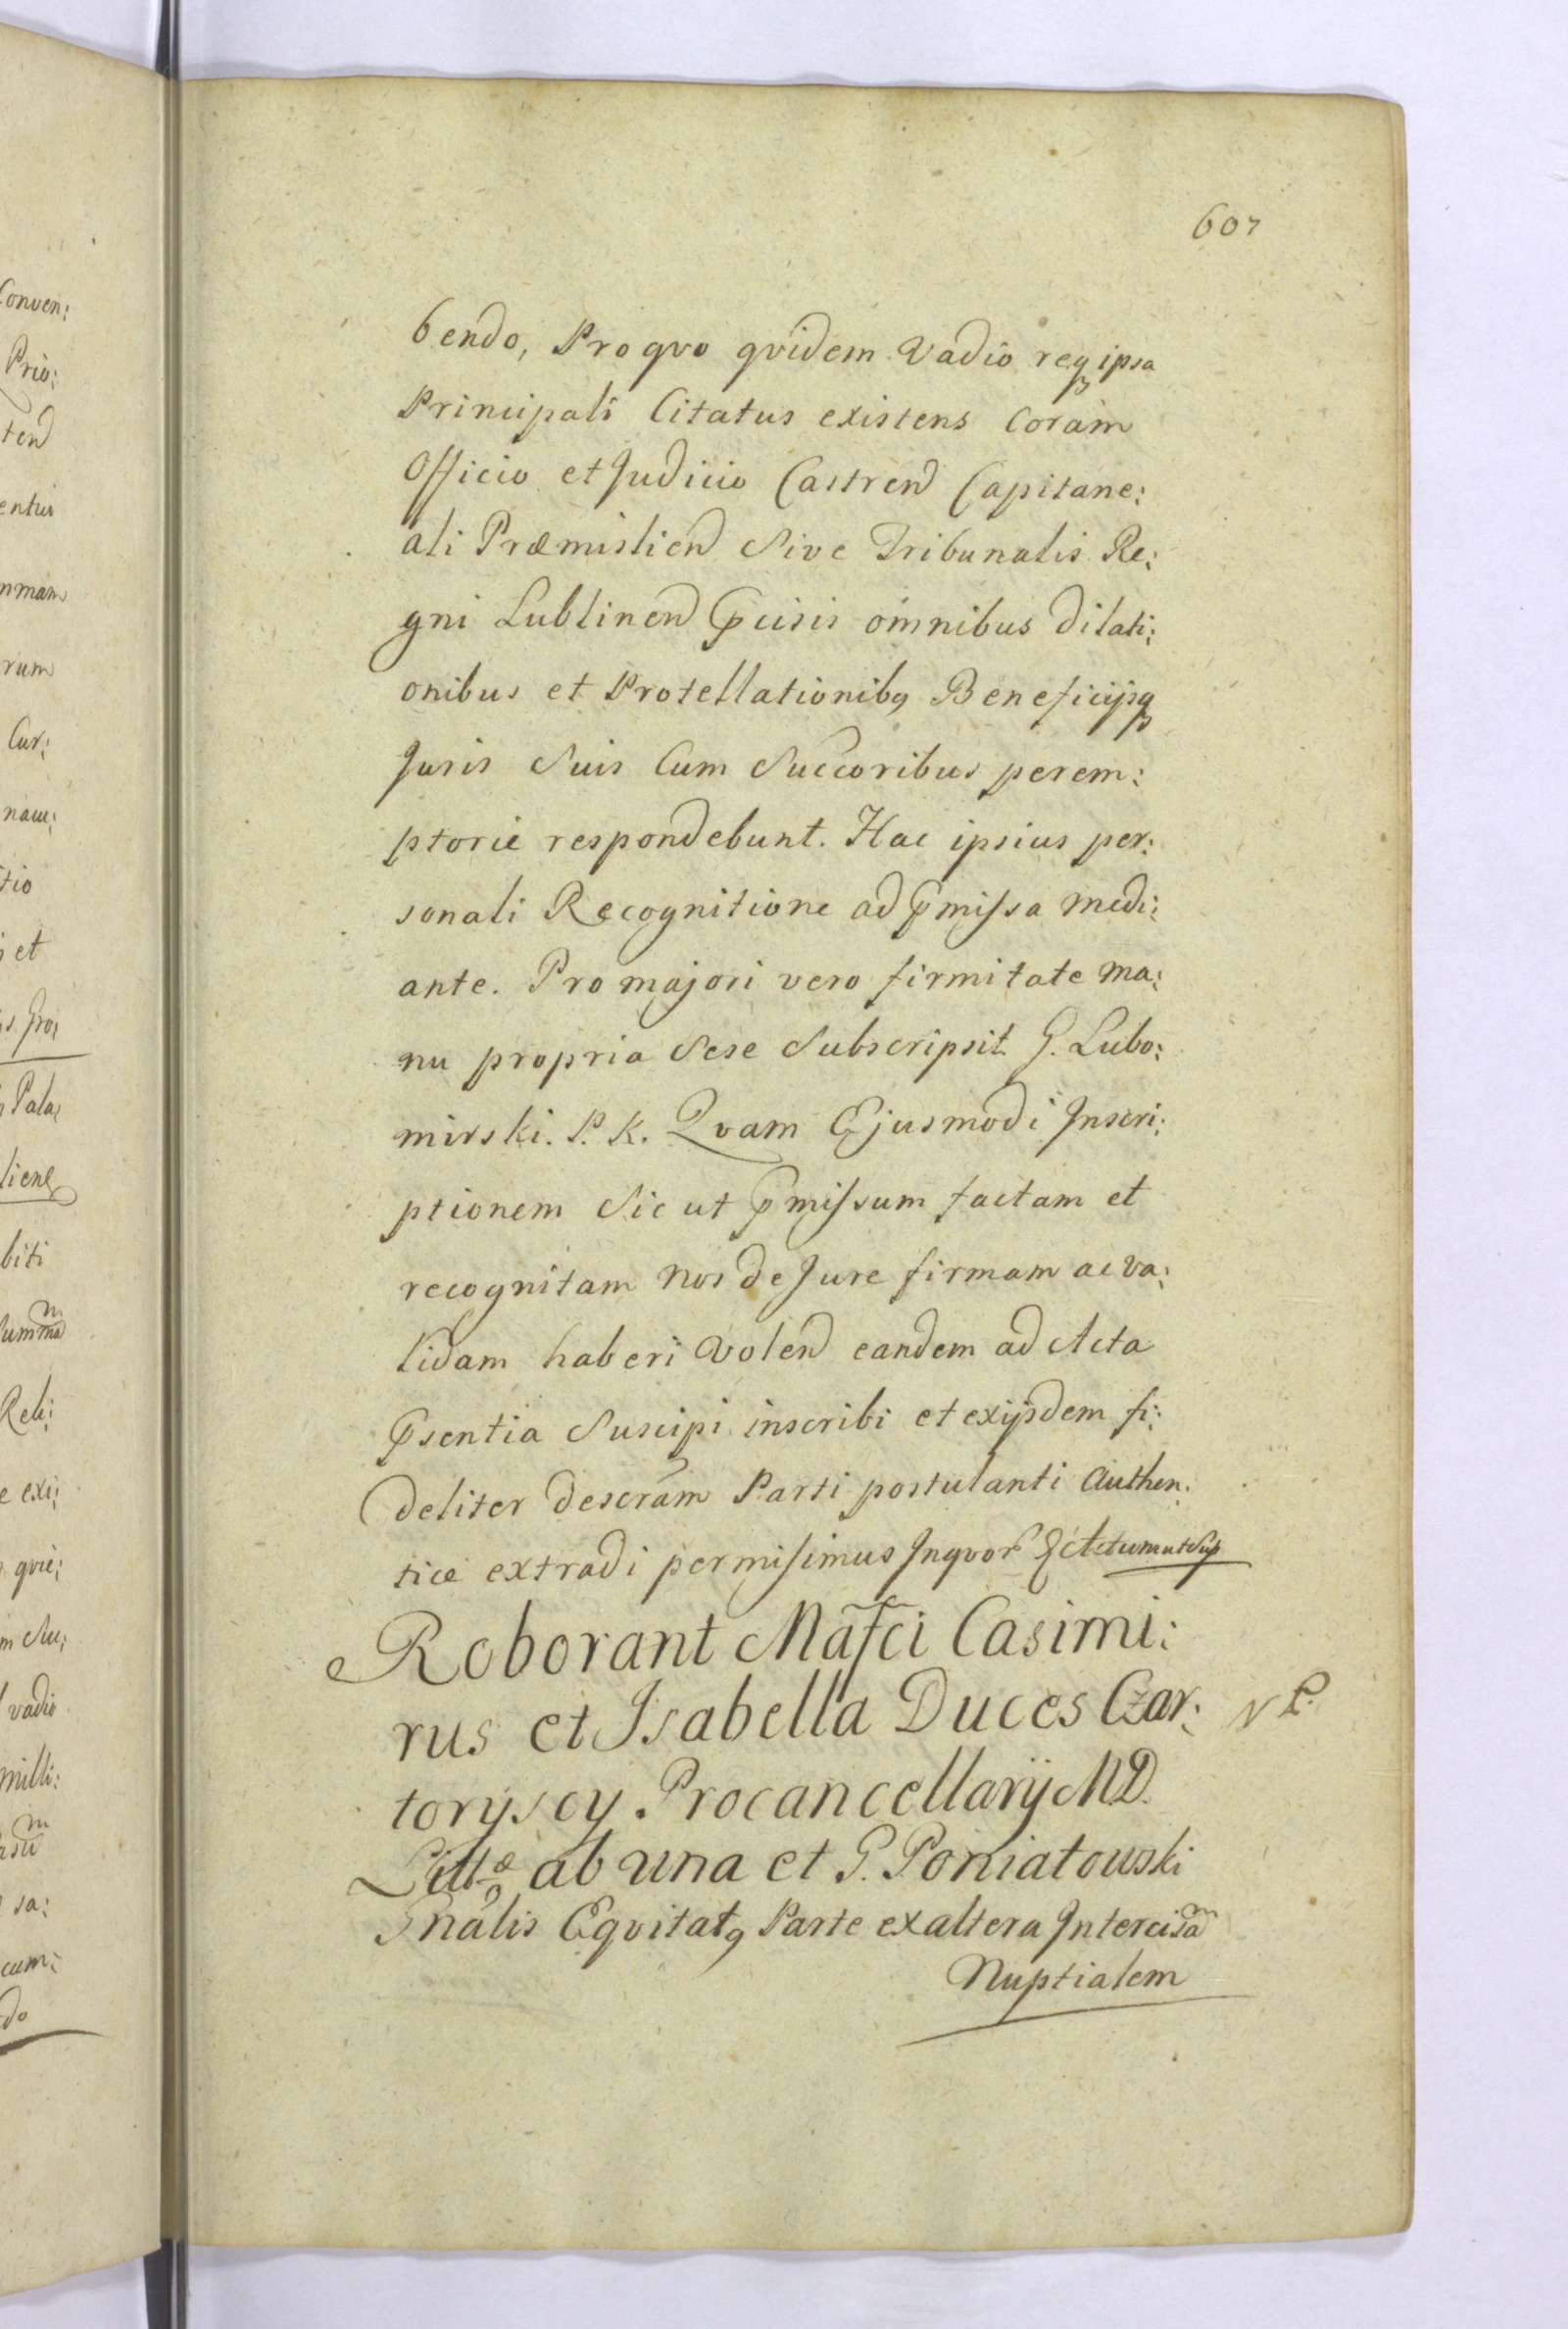 607
bendo, Pro qvo qvidem Vadio reqꝫ ipsa
Principali Citatus existens Coram
Officio et Judicio Castren̄ Capitane:
ali Præmislien̄ Sive Tribunalis Re:
gni Lublinen̄ p̄cisis omnibus Dilati:
onibus et Protellationibꝯ Beneficijsqꝫ
Juris Suis Cum Succoribus perem:
ptorie respondebunt. Hac ipsius per:
sonali Recognitione ad p̄missa medi:
ante. Pro majori vero firmitate ma:
nu propria Sese Subscripsit G. Lubo:
mirski. P. K. Qvam Ejusmodi Inscri:
ptionem Sic ut p̄missum factam et
recognitam Nos de Jure firmam ac va:
lidam haberi Volen̄ eandem ad Acta
p̄sentia Suscipi inscribi et exijsdem fi:
deliter descram̄ Parti postulanti Authen:
tice extradi permisimus Inqvor̄ Actum ut Sup
Roborant Ma͠fci Casimi:
rus et Isabella Duces Czar:
N P.
toryscy Procancellarij M.D.
Litt ab una et G. Poniatowski
Gnālis Eqvitatꝯ Parte ex altera Intercisam̄
Nuptialem
Conven:
Prio:
ten̄
entur
mmam
rum
Cur:
nam:
tio
et
Pala
liene
biti
Summam
Reli:
e exi:
qvie:
m Su:
vadio
milli:
sa:
cum:
do